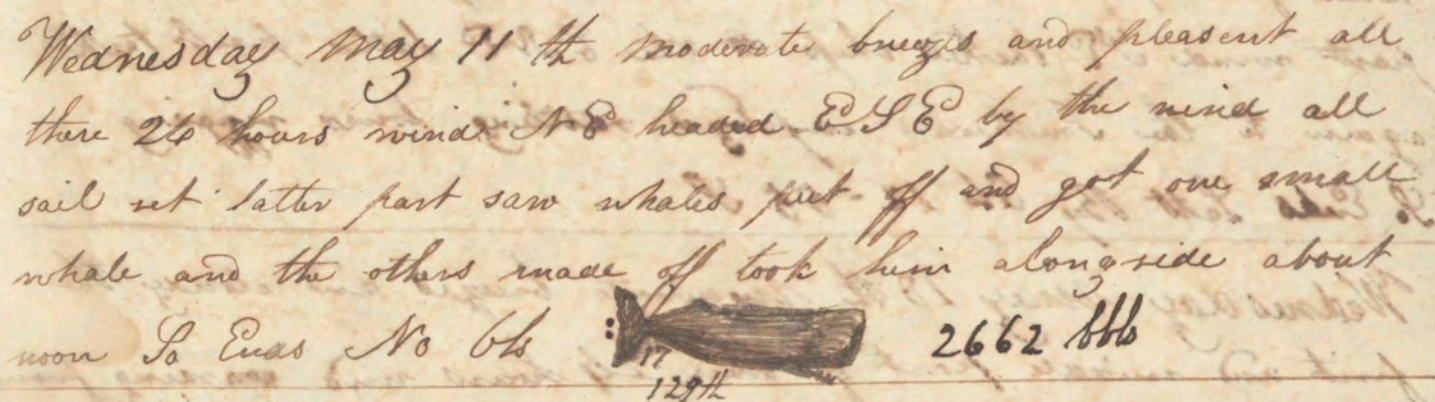 Wednesday May 11 th moderate breezes and pleasent all
these 24 hours wind N E headed E S E by the wind all
sail set latter part saw whales put off and got one small
whale and the others made off took him alongside about
noon So Ends No bls 2662 bbls
17
129th